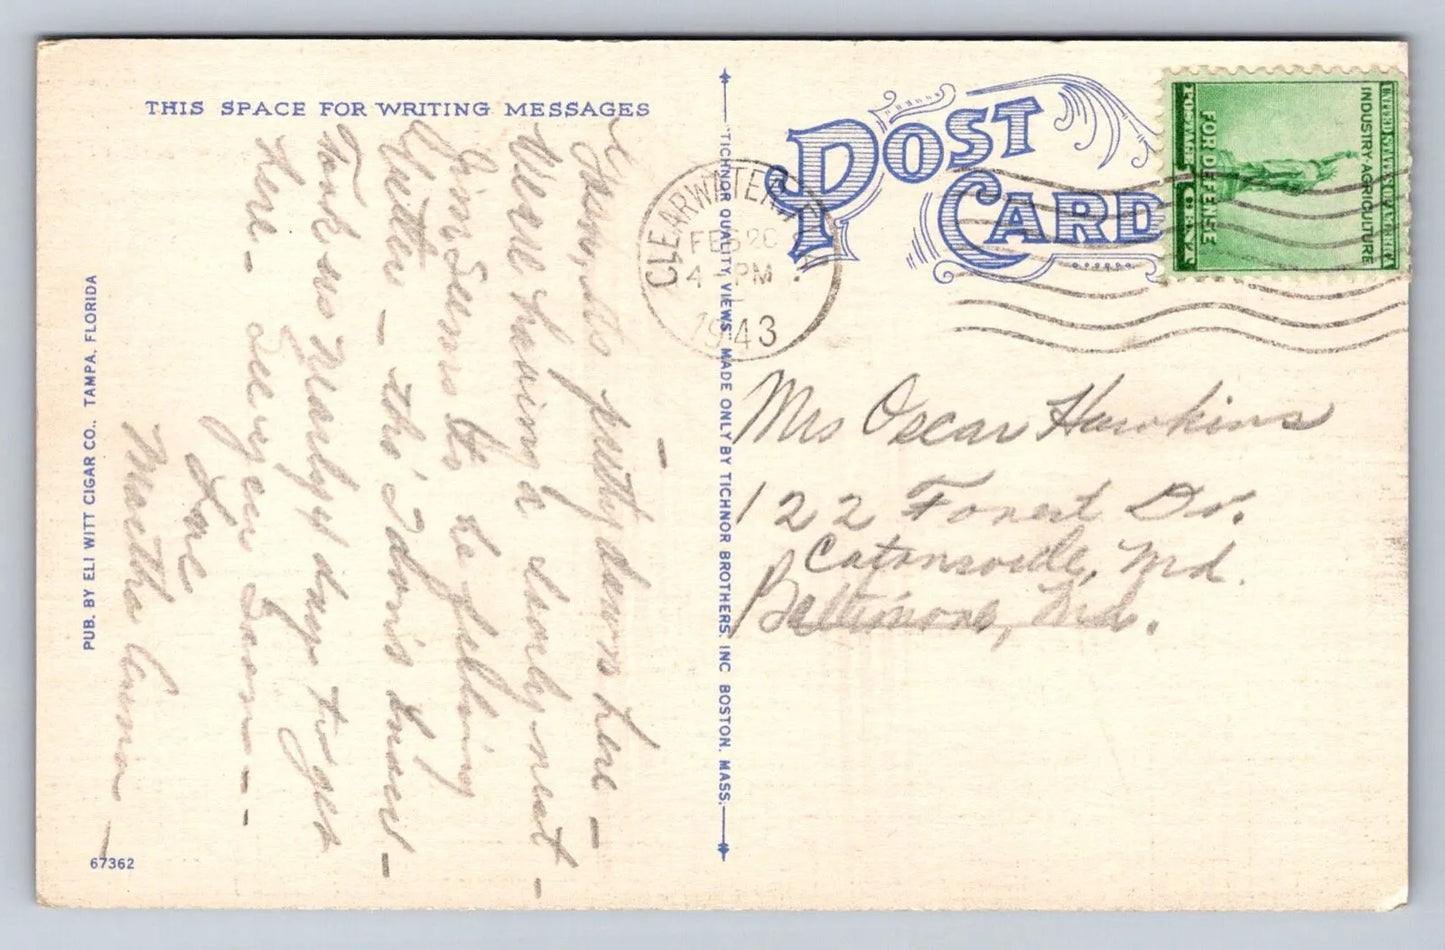 THIS SPACE FOR WRITING MESSAGES
POST CARD
UNITED STATES OF AMERICA
INDUSTRY AGRICULTURE
FOR DEFENSE
POSTAGE 1 CENT
CLEARWATER
FEB 20
4 - PM
1943
its pretty down here -
Were having a lovely rest -
Jim seems to be feeling
better - tho' I don't know -
Took us nearly 4 days to get
here - See you soon - -
Love
Martha
Mrs Oscar Hawkins
122 Forest Dr.
Catonsville, Md.
Baltimore, Md.
PUB. BY ELI WITT CIGAR CO., TAMPA, FLORIDA
"TICHNOR QUALITY VIEWS," MADE ONLY BY TICHNOR BROTHERS, INC BOSTON, MASS.
67362